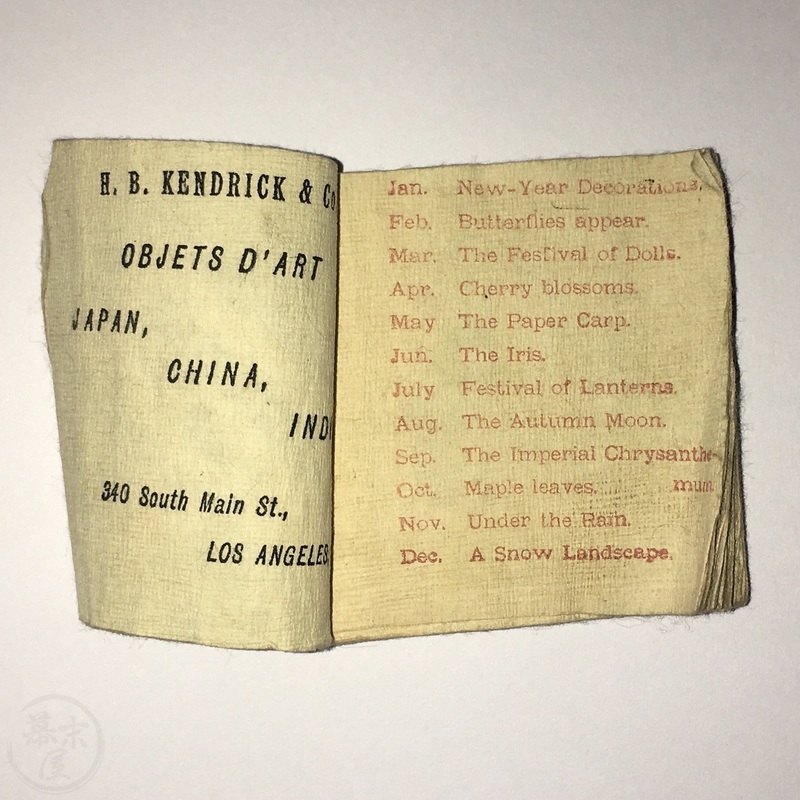 H. B. KENDRICK & Co
OBJETS D'ART
JAPAN,
CHINA,
IND
340 South Main St.,
LOS ANGELES
Jan. New-Year Decorations,
Feb. Butterflies appear.
Mar. The Festival of Dolls.
Apr. Cherry blossoms.
May The Paper Carp.
Jun. The Iris.
July Festival of Lanterns.
Aug. The Autumn Moon.
Sep. The Imperial Chrysanthe-
Oct. Maple leaves. mum
Nov. Under the Rain.
Dec. A Snow Landscape.
幕末
屋